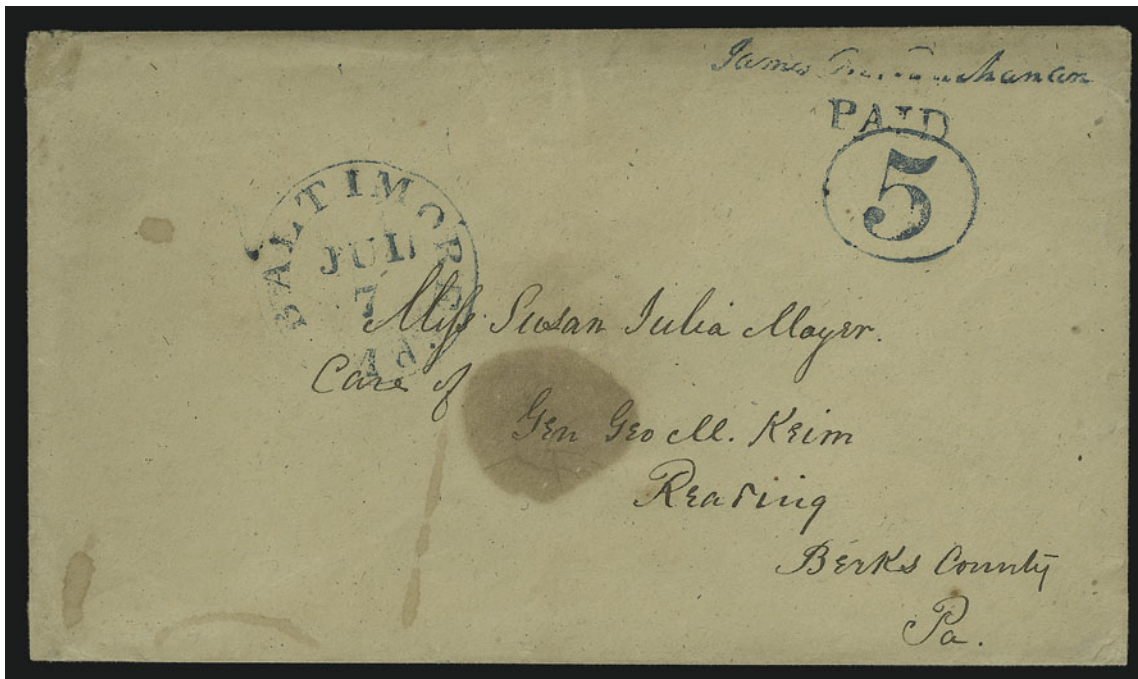 James M. Buchanan
PAID
5
BALTIMORE Md.
JUL
7
Miss Susan Julia Mayer.
Care of
Gen Geo M. Keim
Reading
Berks County
Pa.